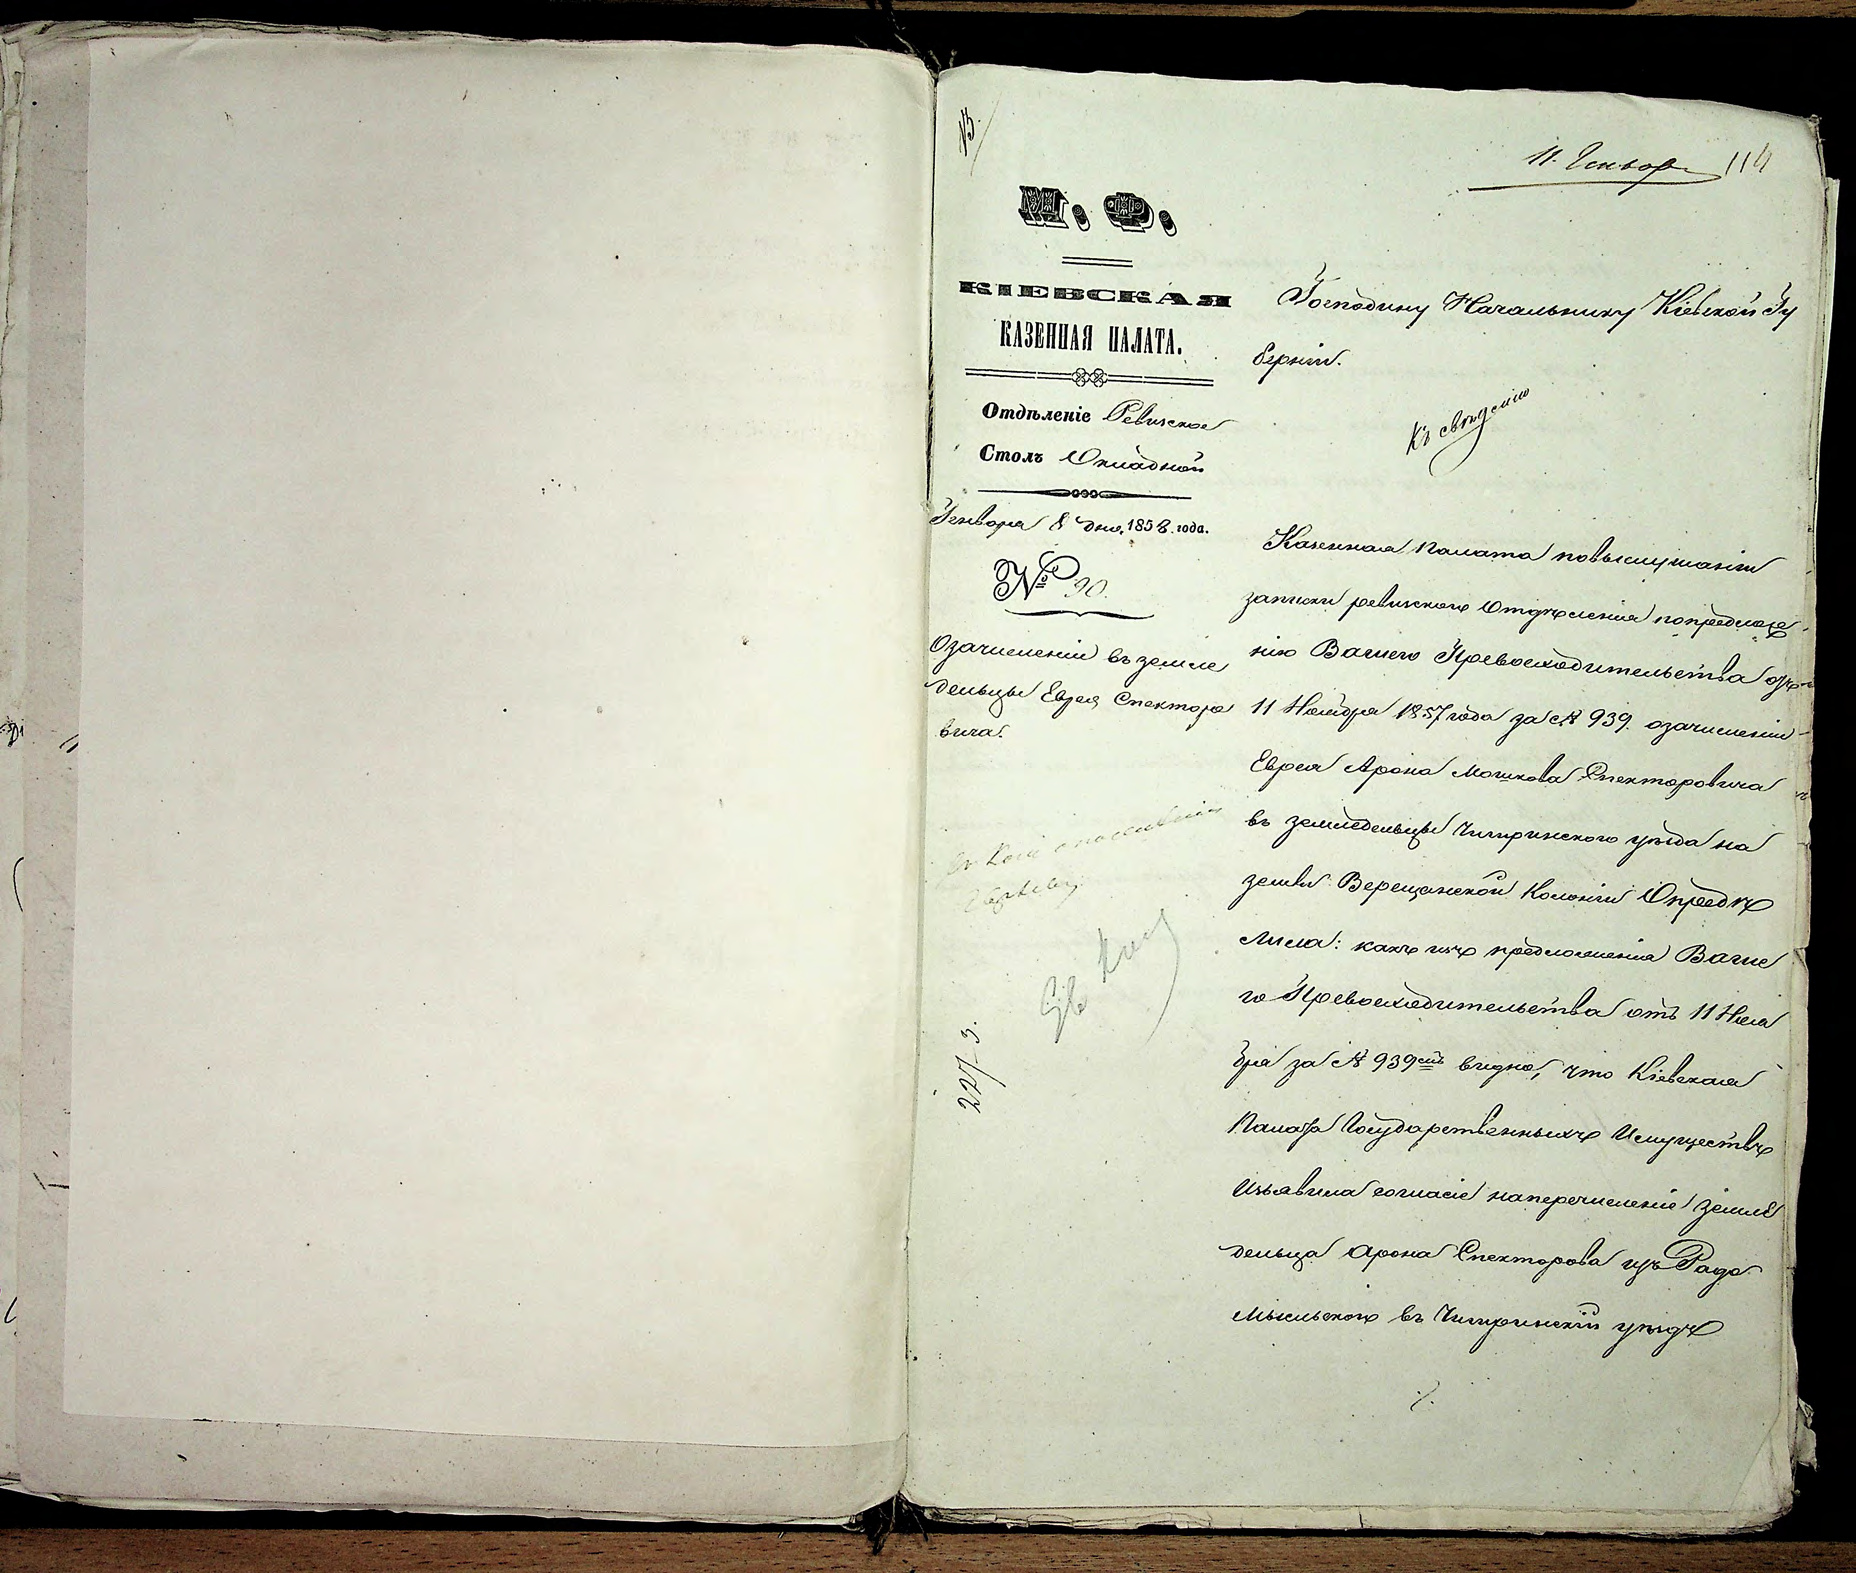 11. Генвар 114
М. Ф.
КІЕВСКАЯ
КАЗЕННАЯ ПАЛАТА.
Отдѣленіе Ревизское
Столъ Окладной
Генваря 8 дня, 1858. года.
№ 90.
О зачисленіи въ земле
дельцы Еврея Спекторо
вича.
227 з.
Господину Начальнику Кіевской Гу
берніи.
Къ свѣденію
Казенная Палата по выслушаніи
записки ревизскаго Отдѣленія по предложе
нію Вашего Превосходительства отъ
11 Ноября 1857 года за № 939. о зачисленіи
Еврея Арона Мошкова Спекторовича
въ земледельцы Чигиринскаго уѣзда на
земли Верещанской Колоніи Опредѣ
лила: какъ изъ предложенія Ваше
го Превосходительства отъ 11 Ноя
бря за № 939мъ видно, что Кіевская
Палата Государственныхъ Имуществъ
Изъявила согласіе на перечисленіе земле
дельца Арона Спекторова изъ Радо
мысльского въ Чигиринскій уѣздъ